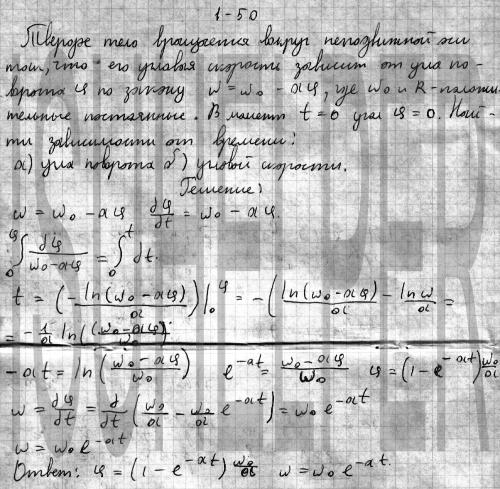 1-50
Твердое тело вращается вокруг неподвижной оси
так, что его угловая скорость зависит от угла по-
ворота φ по закону ω = ω₀ - αφ, где ω₀ и α - положи-
тельные постоянные. В момент t = 0 угол φ = 0. Най-
ти зависимости от времени:
а) угла поворота б) угловой скорости.
Решение:
ω = ω₀ - αφ dφ/dt = ω₀ - αφ.
∫₀^φ dφ/(ω₀ - αφ) = ∫₀^t dt.
t = (- ln(ω₀ - αφ)/α)|₀^φ = -(ln(ω₀ - αφ)/α - ln ω/α =
= - 1/α ln((ω₀ - αφ)/ω₀).
-αt = ln((ω₀ - αφ)/ω₀) e^(-αt) = (ω₀ - αφ)/ω₀ φ = (1 - e^(-αt)) ω₀/α
ω = dφ/dt = d/dt (ω₀/α - ω₀/α e^(-αt)) = ω₀ e^(-αt)
ω = ω₀ e^(-αt)
Ответ: φ = (1 - e^(-αt)) ω₀/α ω = ω₀ e^(-αt).